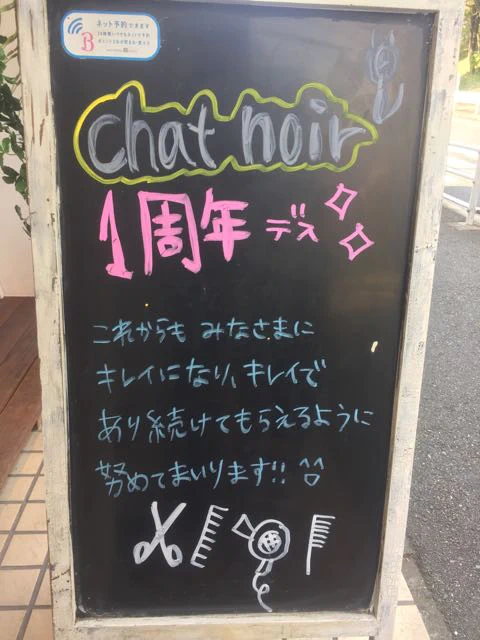 ネット予約できます
B
chat noir
1周年デス
これからも みなさまに
キレイになり、キレイで
あり続けてもらえるように
努めてまいります!!